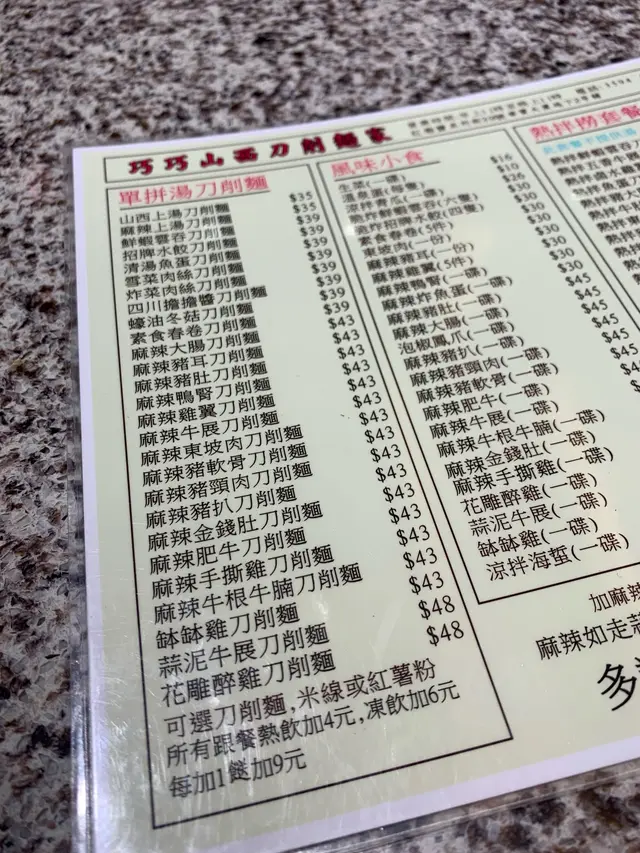 巧巧山西刀削麵家
單拼湯刀削麵
山西上湯刀削麵 $35
麻辣上湯刀削麵 $35
鮮蝦雲吞刀削麵 $39
招牌水餃刀削麵 $39
清湯魚蛋刀削麵 $39
雪菜肉絲刀削麵 $39
炸菜肉絲刀削麵 $39
四川擔擔醬刀削麵 $39
蠔油冬菇刀削麵 $39
素食春卷刀削麵 $43
麻辣大腸刀削麵 $43
麻辣豬耳刀削麵 $43
麻辣豬肚刀削麵 $43
麻辣鴨腎刀削麵 $43
麻辣雞翼刀削麵 $43
麻辣牛展刀削麵 $43
麻辣東坡肉刀削麵 $43
麻辣豬軟骨刀削麵 $43
麻辣豬頸肉刀削麵 $43
麻辣豬扒刀削麵 $43
麻辣金錢肚刀削麵 $43
麻辣肥牛刀削麵 $43
麻辣手撕雞刀削麵 $43
麻辣牛根牛腩刀削麵 $43
缽缽雞刀削麵
蒜泥牛展刀削麵 $48
花雕醉雞刀削麵 $48
可選刀削麵,米線或紅薯粉
所有跟餐熱飲加4元,凍飲加6元
每加1餸加9元
風味小食
生菜(一碟) $16
溫泉蛋(每隻)
涼拌青瓜(一碟)
熱炸鮮蝦雲吞(六隻) $30
熱炸招牌水餃(四隻) $30
素食春卷(5件) $30
東坡肉(一份) $30
麻辣豬耳(一份) $30
麻辣雞翼(5件) $30
麻辣鴨腎(一碟) $45
麻辣炸魚蛋(一碟) $45
麻辣豬肚(一碟) $45
麻辣大腸(一碟) $45
泡椒鳳爪(一碟) $45
麻辣豬扒(一碟)
麻辣豬頸肉(一碟)
麻辣豬軟骨(一碟)
麻辣肥牛(一碟)
麻辣牛展(一碟)
麻辣牛根牛腩(一碟)
麻辣金錢肚(一碟)
麻辣手撕雞(一碟)
花雕醉雞(一碟)
蒜泥牛展(一碟)
缽缽雞(一碟)
涼拌海蜇(一碟)
加麻辣
麻辣如走蒜
多
熱拌撈套餐